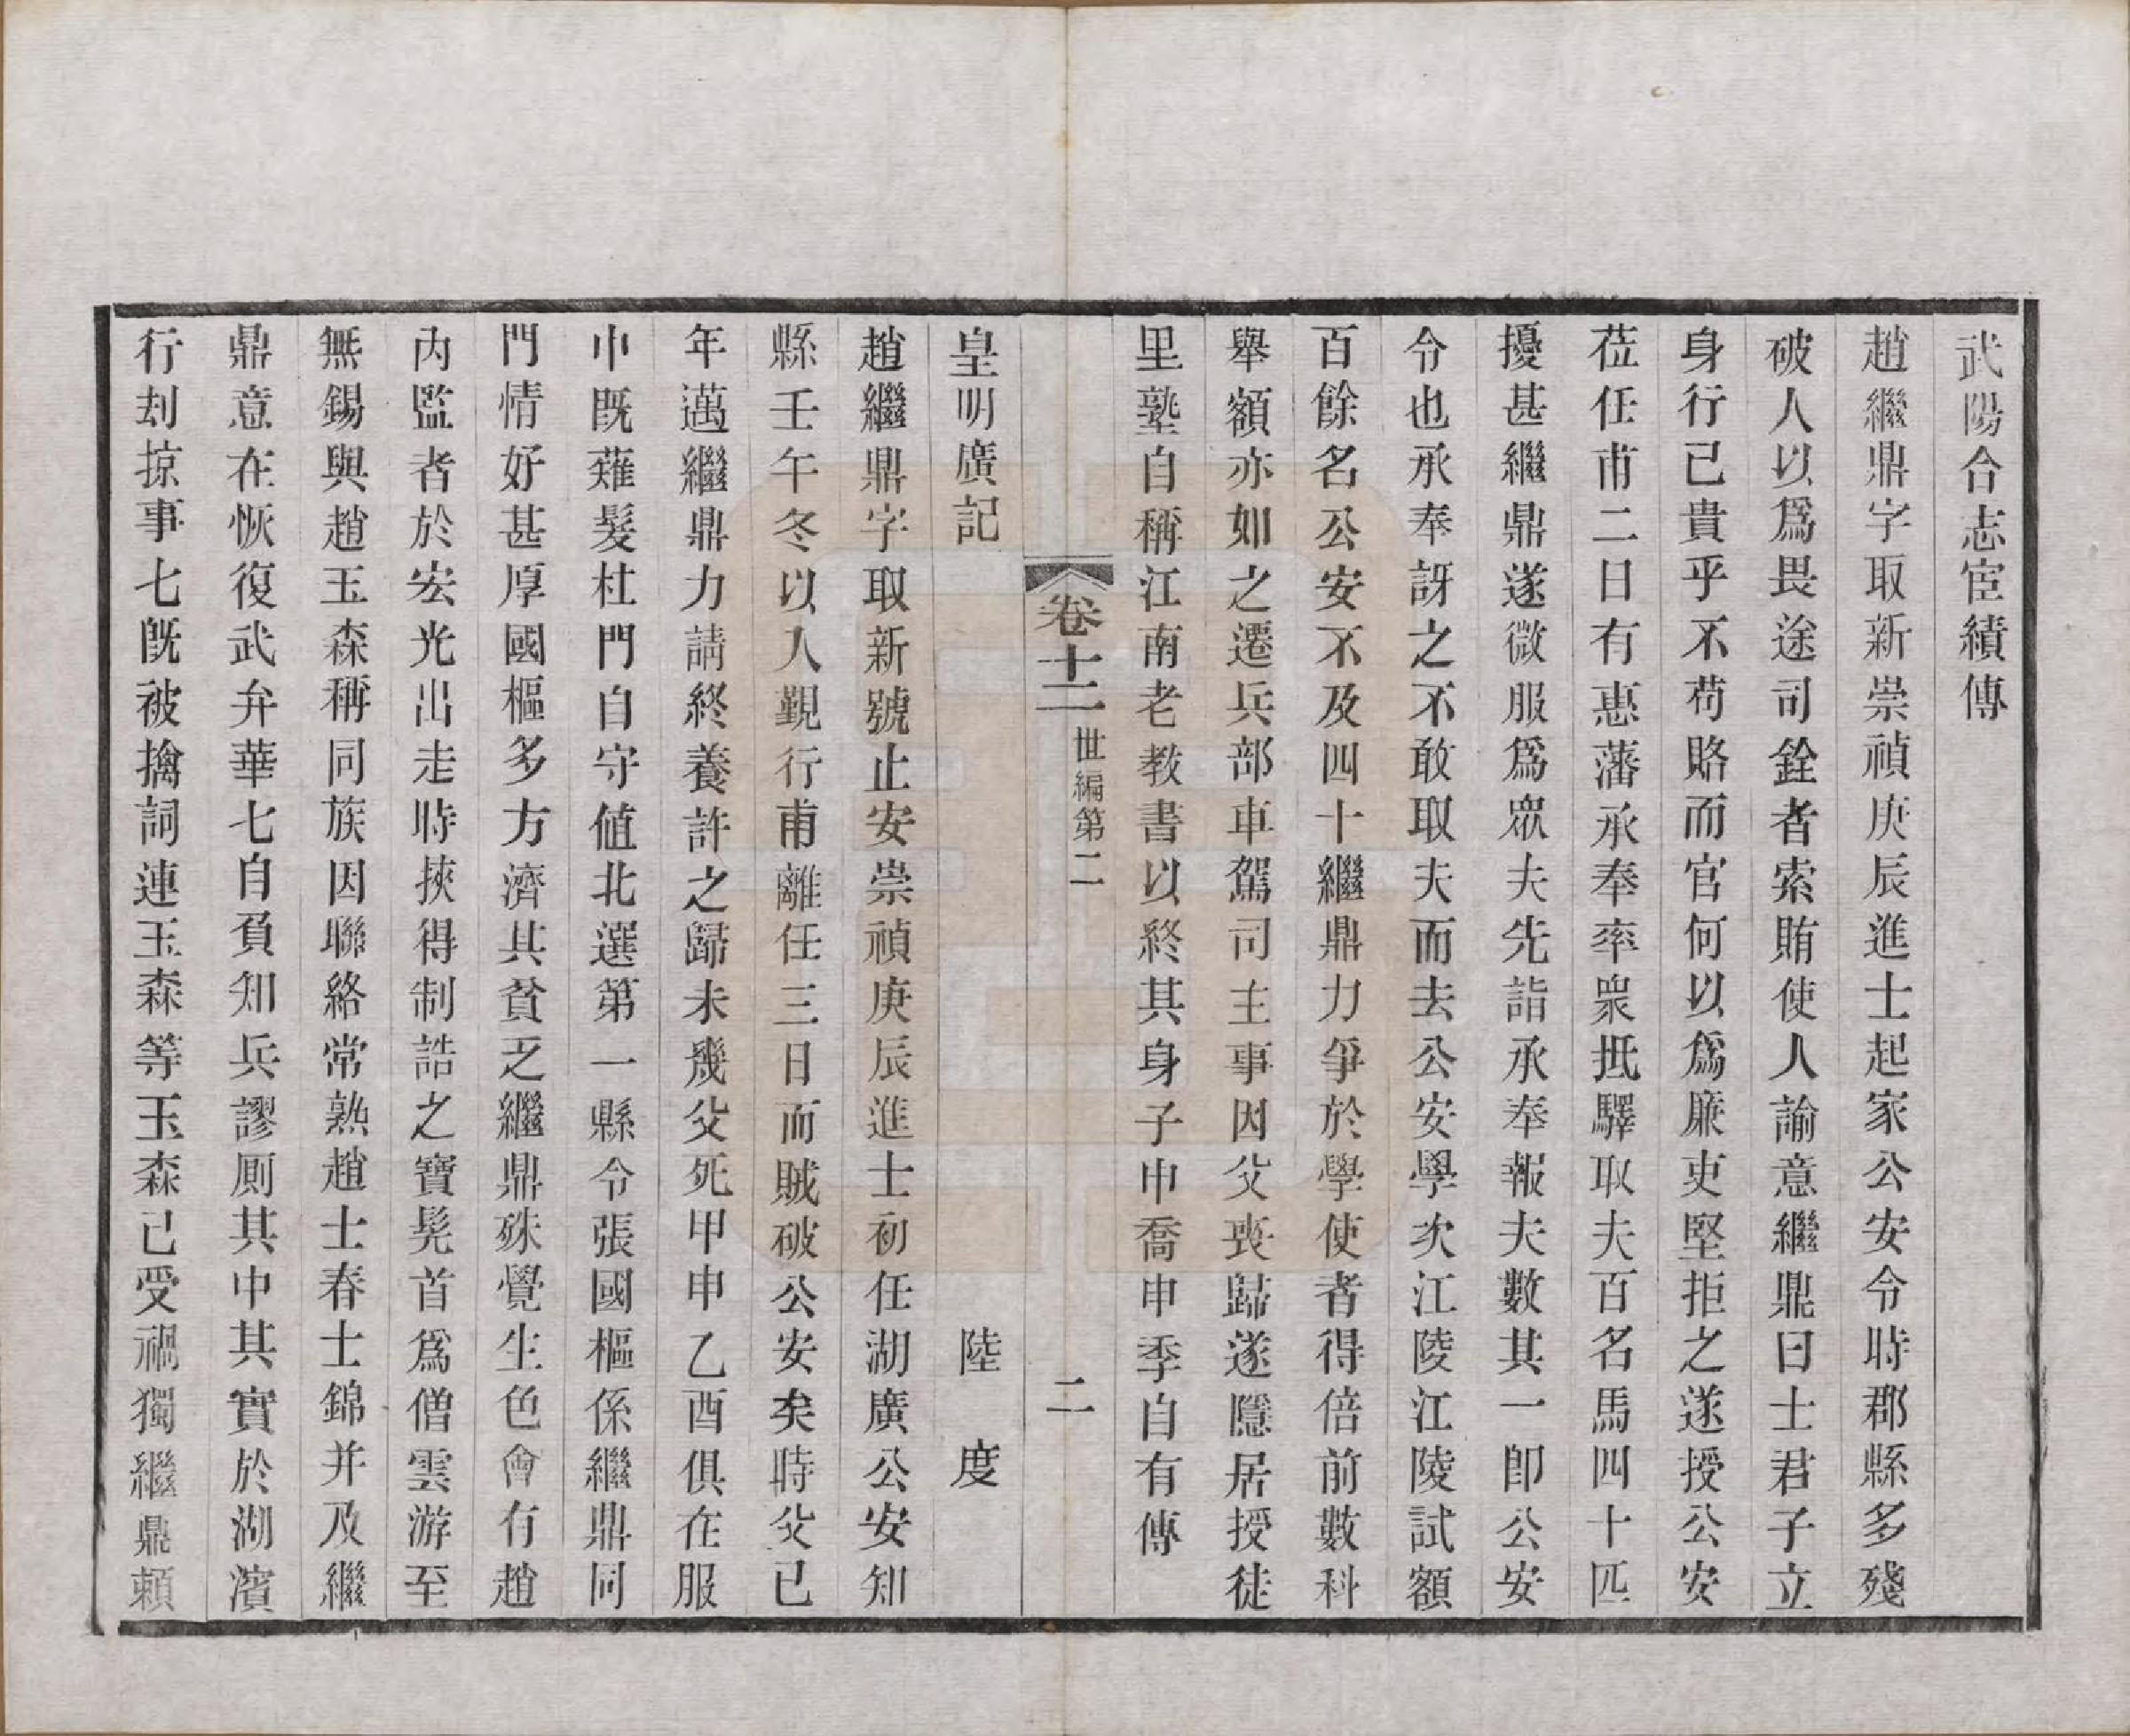 武陽合志宦績傳
趙繼鼎字取新崇禎庚辰進士起家公安令時郡縣多殘
破人以爲畏途司銓者索賄使人諭意繼鼎曰士君子立
身行己貴乎不苟賂而官何以爲廉吏堅拒之遂授公安
莅任甫二日有惠藩承奉率衆抵驛取夫百名馬四十匹
擾甚繼鼎遂微服爲眾夫先詣承奉報夫數其一卽公安
令也承奉訝之不敢取夫而去公安學次江陵江陵試額
百餘名公安不及四十繼鼎力爭於學使者得倍前數科
舉額亦如之遷兵部車駕司主事因父喪歸遂隱居授徒
里塾自稱江南老教書以終其身子申喬申季自有傳
卷十二 世編第二 二
皇明廣記 陸度
趙繼鼎字取新號止安崇禎庚辰進士初任湖廣公安知
縣壬午冬以入覲行甫離任三日而賊破公安矣時父已
年邁繼鼎力請終養許之歸未幾父死甲申乙酉俱在服
中既薙髮杜門自守値北選第一縣令張國樞係繼鼎同
門情好甚厚國樞多方濟其貧乏繼鼎殊覺生色會有趙
內監者於宏光出走時挾得制誥之寶髡首爲僧雲游至
無錫與趙玉森稱同族因聯絡常熟趙士春士錦并及繼
鼎意在恢復武弁華七自負知兵謬厠其中其實於湖濱
行刦掠事七旣被擒詞連玉森等玉森已受禍獨繼鼎頼